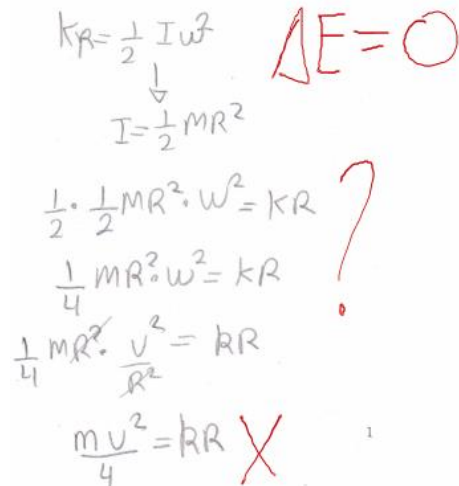 KR = 1/2 Iω²
ΔE = 0
↓
I = 1/2 MR²
1/2 · 1/2 MR² · W² = KR
?
1/4 MR² · w² = KR
1/4 MR² · v²/R² = KR
mv²/4 = KR X
1